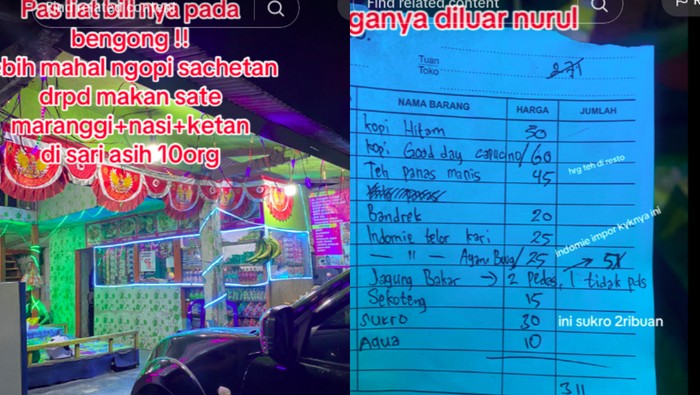 Pas liat bill nya pada
Find related content
bengong !!
bih mahal ngopi sachetan
drpd makan sate
maranggi+nasi+ketan
di sari asih 10org
Find related content
ganya diluar nurul
Tuan
Toko
271
NAMA BARANG HARGA JUMLAH
kopi Hitam 30
kopi Good day capucino/ 60
Teh panas manis 45 hrg teh di resto
Bandrek 20
Indomie telor kari 25 indomie impor kyknya ini
— 11 — Ayam Bawg/ 25 → 5x
Jagung Bakar → 2 Pedes, 1 tidak pds
Sekoteng 15
Sukro 30 ini sukro 2ribuan
Aqua 10
311